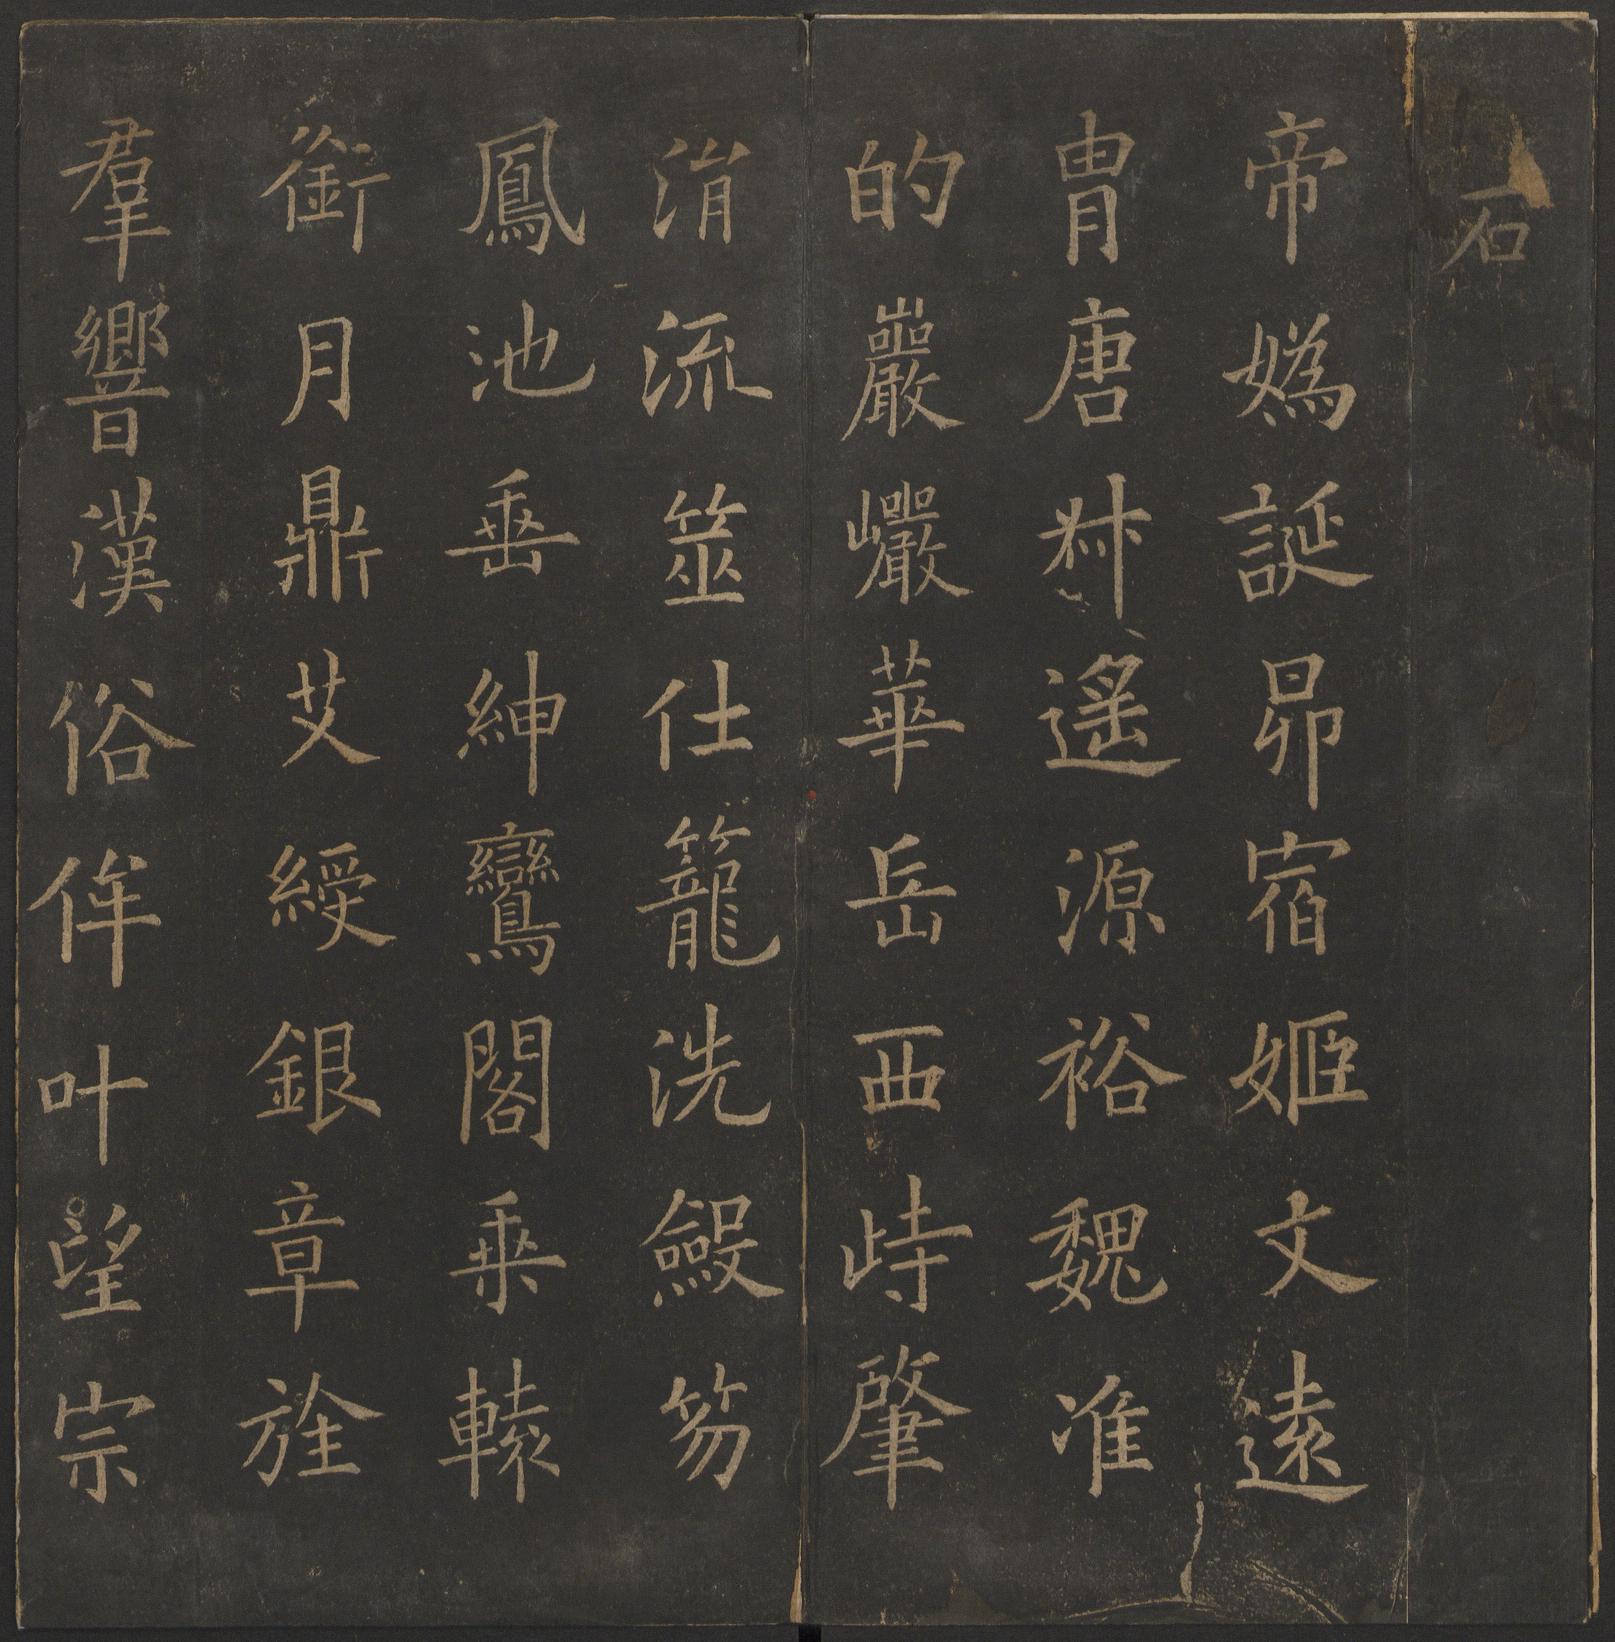 石
帝媯誕昴宿姬文遠
冑唐叔遙源裕魏准
的巖巗華岳西峙肇
涓流筮仕籠洗斂笏
鳳池垂紳鸞閣乘轅
銜月鼎艾綬銀章旌
羣響漢俗侔叶望宗